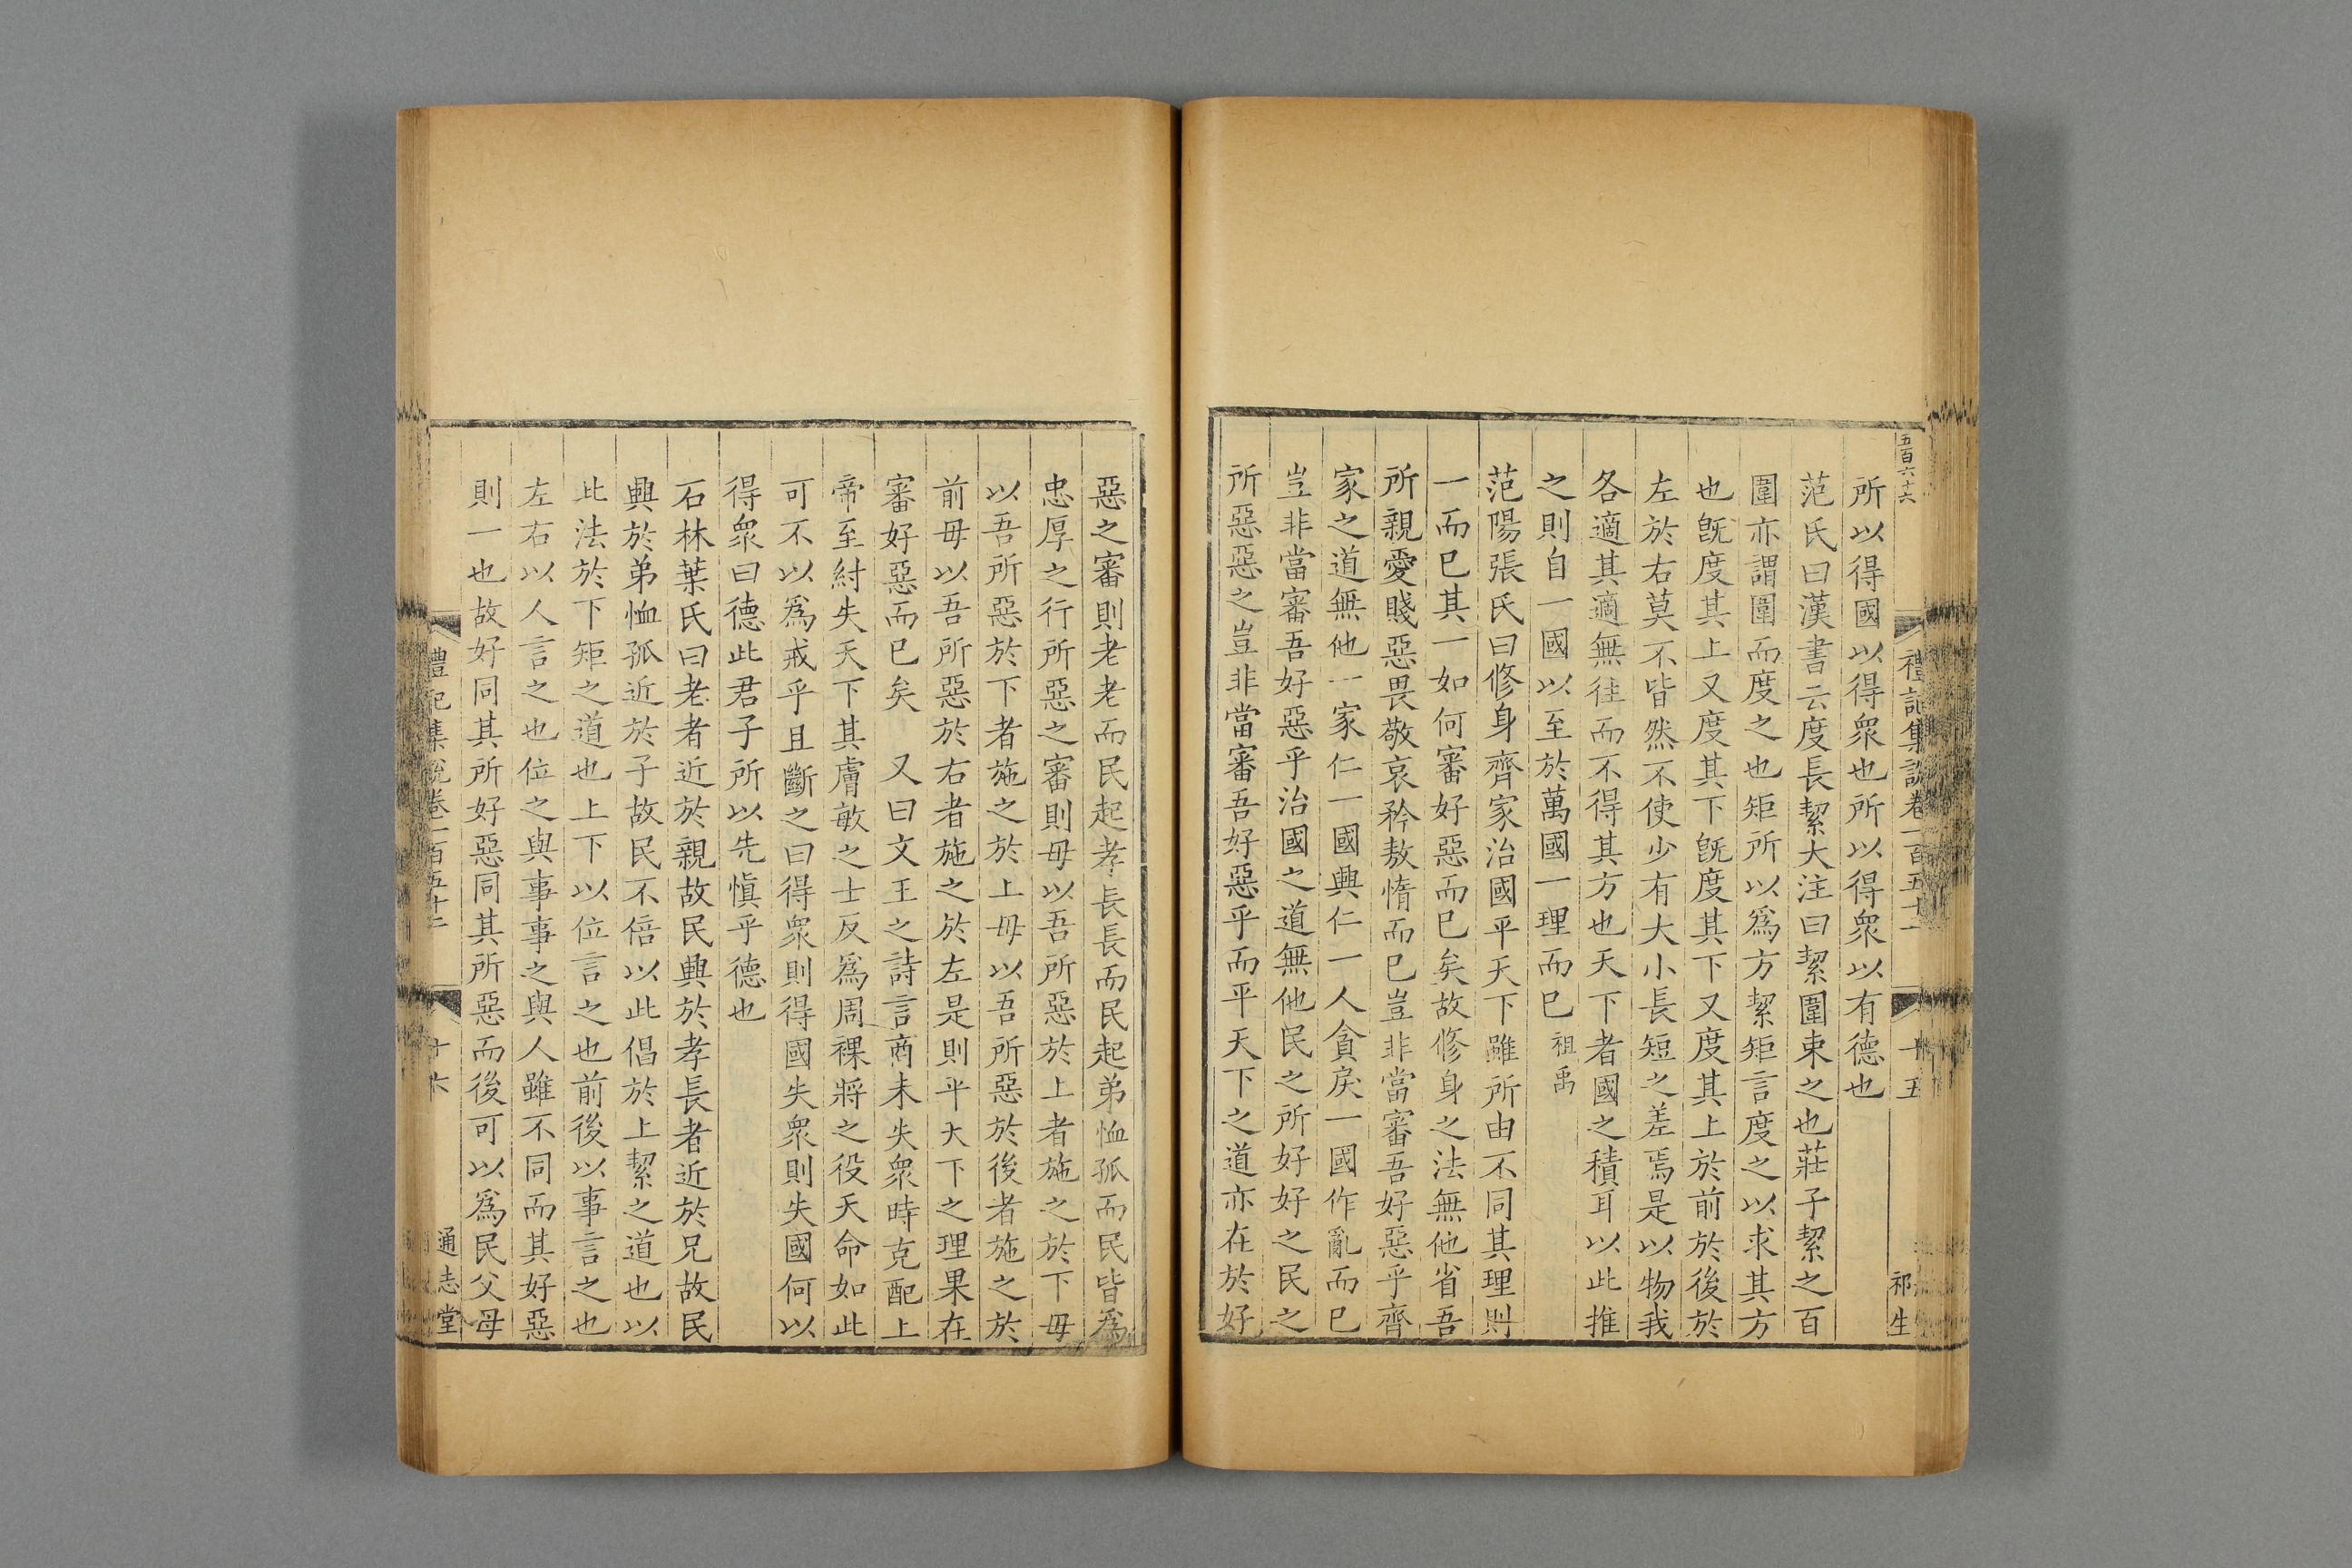 五百六十六
禮記集說卷一百五十一
十五
祁生
所以得國以得衆也所以得衆以有德也
范氏曰漢書云度長絜大注曰絜圍束之也莊子絜之百
圍亦謂圍而度之也矩所以爲方絜矩言度之以求其方
也旣度其上又度其下旣度其下又度其上於前於後於
左於右莫不皆然不使少有大小長短之差焉是以物我
各適其適無往而不得其方也天下者國之積耳以此推
之則自一國以至於萬國一理而已祖禹
范陽張氏曰修身齊家治國平天下雖所由不同其理則
一而已其一如何審好惡而已矣故修身之法無他省吾
所親愛賤惡畏敬哀矜敖惰而已豈非當審吾好惡乎齊
家之道無他一家仁一國興仁一人貪戾一國作亂而已
豈非當審吾好惡乎治國之道無他民之所好好之民之
所惡惡之豈非當審吾好惡乎而平天下之道亦在於好
惡之審則老老而民起孝長長而民起弟恤孤而民皆爲
忠厚之行所惡之審則毋以吾所惡於上者施之於下毋
以吾所惡於下者施之於上毋以吾所惡於後者施之於
前毋以吾所惡於右者施之於左是則平天下之理果在
審好惡而已矣 又曰文王之詩言商未失衆時克配上
帝至紂失天下其膚敏之士反爲周祼將之役天命如此
可不以爲戒乎且斷之曰得衆則得國失衆則失國何以
得衆曰德此君子所以先愼乎德也
石林葉氏曰老者近於親故民興於孝長者近於兄故民
興於弟恤孤近於子故民不倍以此倡於上絜之道也以
此法於下矩之道也上下以位言之也前後以事言之也
左右以人言之也位之與事事之與人雖不同而其好惡
則一也故好同其所好惡同其所惡而後可以爲民父母
禮記集說卷一百五十一
十六
通志堂